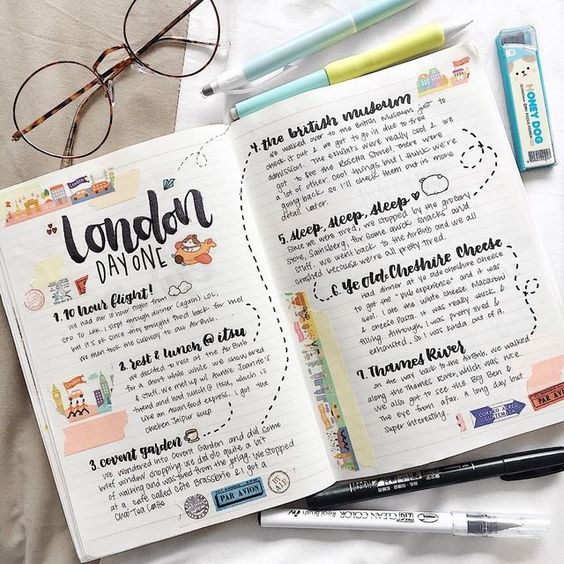 london
DAY ONE
1. 10 hour flight!
we had our 10 hour night from
SFO to LHR. I slept through dinner (again) LOL,
but it's ok since they brought food back for me!
we then took the subway to our AirBnb.
2. rest & lunch @ itsu
we decided to rest at the AirBnb
for a short while while we showered
& stuff. We met up w/ Auntie Jeannie's
friend and had lunch @ Itsu, which is
like an Asian food express. I got the
chicken
soup.
3. covent garden
we wandered into Covent Garden and did some
brief window shopping. we did do quite a bit
of walking and was tired from the jetlag. We stopped
at a cafe called Cafe Brasserie & I got a
Chai Tea Latte.
PAR AVION
4. the british museum
we walked over to the British Museum just to
check it out & we got to go in due to free
admission. The exhibits were really cool & we
got to see the Rosetta Stone! There were
a lot of other cool things but I think we're
going back so I'll check them out in more
detail later.
5. sleep, sleep, sleep
Since we were tired, we stopped by the grocery
store, Sainsberg, for some quick snacks and
stuff. We went back to the AirBnb and we all
crashed because we're all pretty tired.
6. Ye Old Cheshire Cheese
Had dinner at Ye Olde Cheshire Cheese
to get the "pub experience" and it was
cool. I ate the white cheese macaroni
& cheese pasta. It was really thick &
filling. Although, I was pretty tired &
exhausted, so I was kinda out of it.
7. Thames River
on the way back to the AirBnb, we walked
along the Thames River, which was nice.
We also got to see the Big Ben &
The Eye from afar. A long day but
super interesting.
PAR AVION
HONEY DOG
CLEAN COLOR
Real Brush